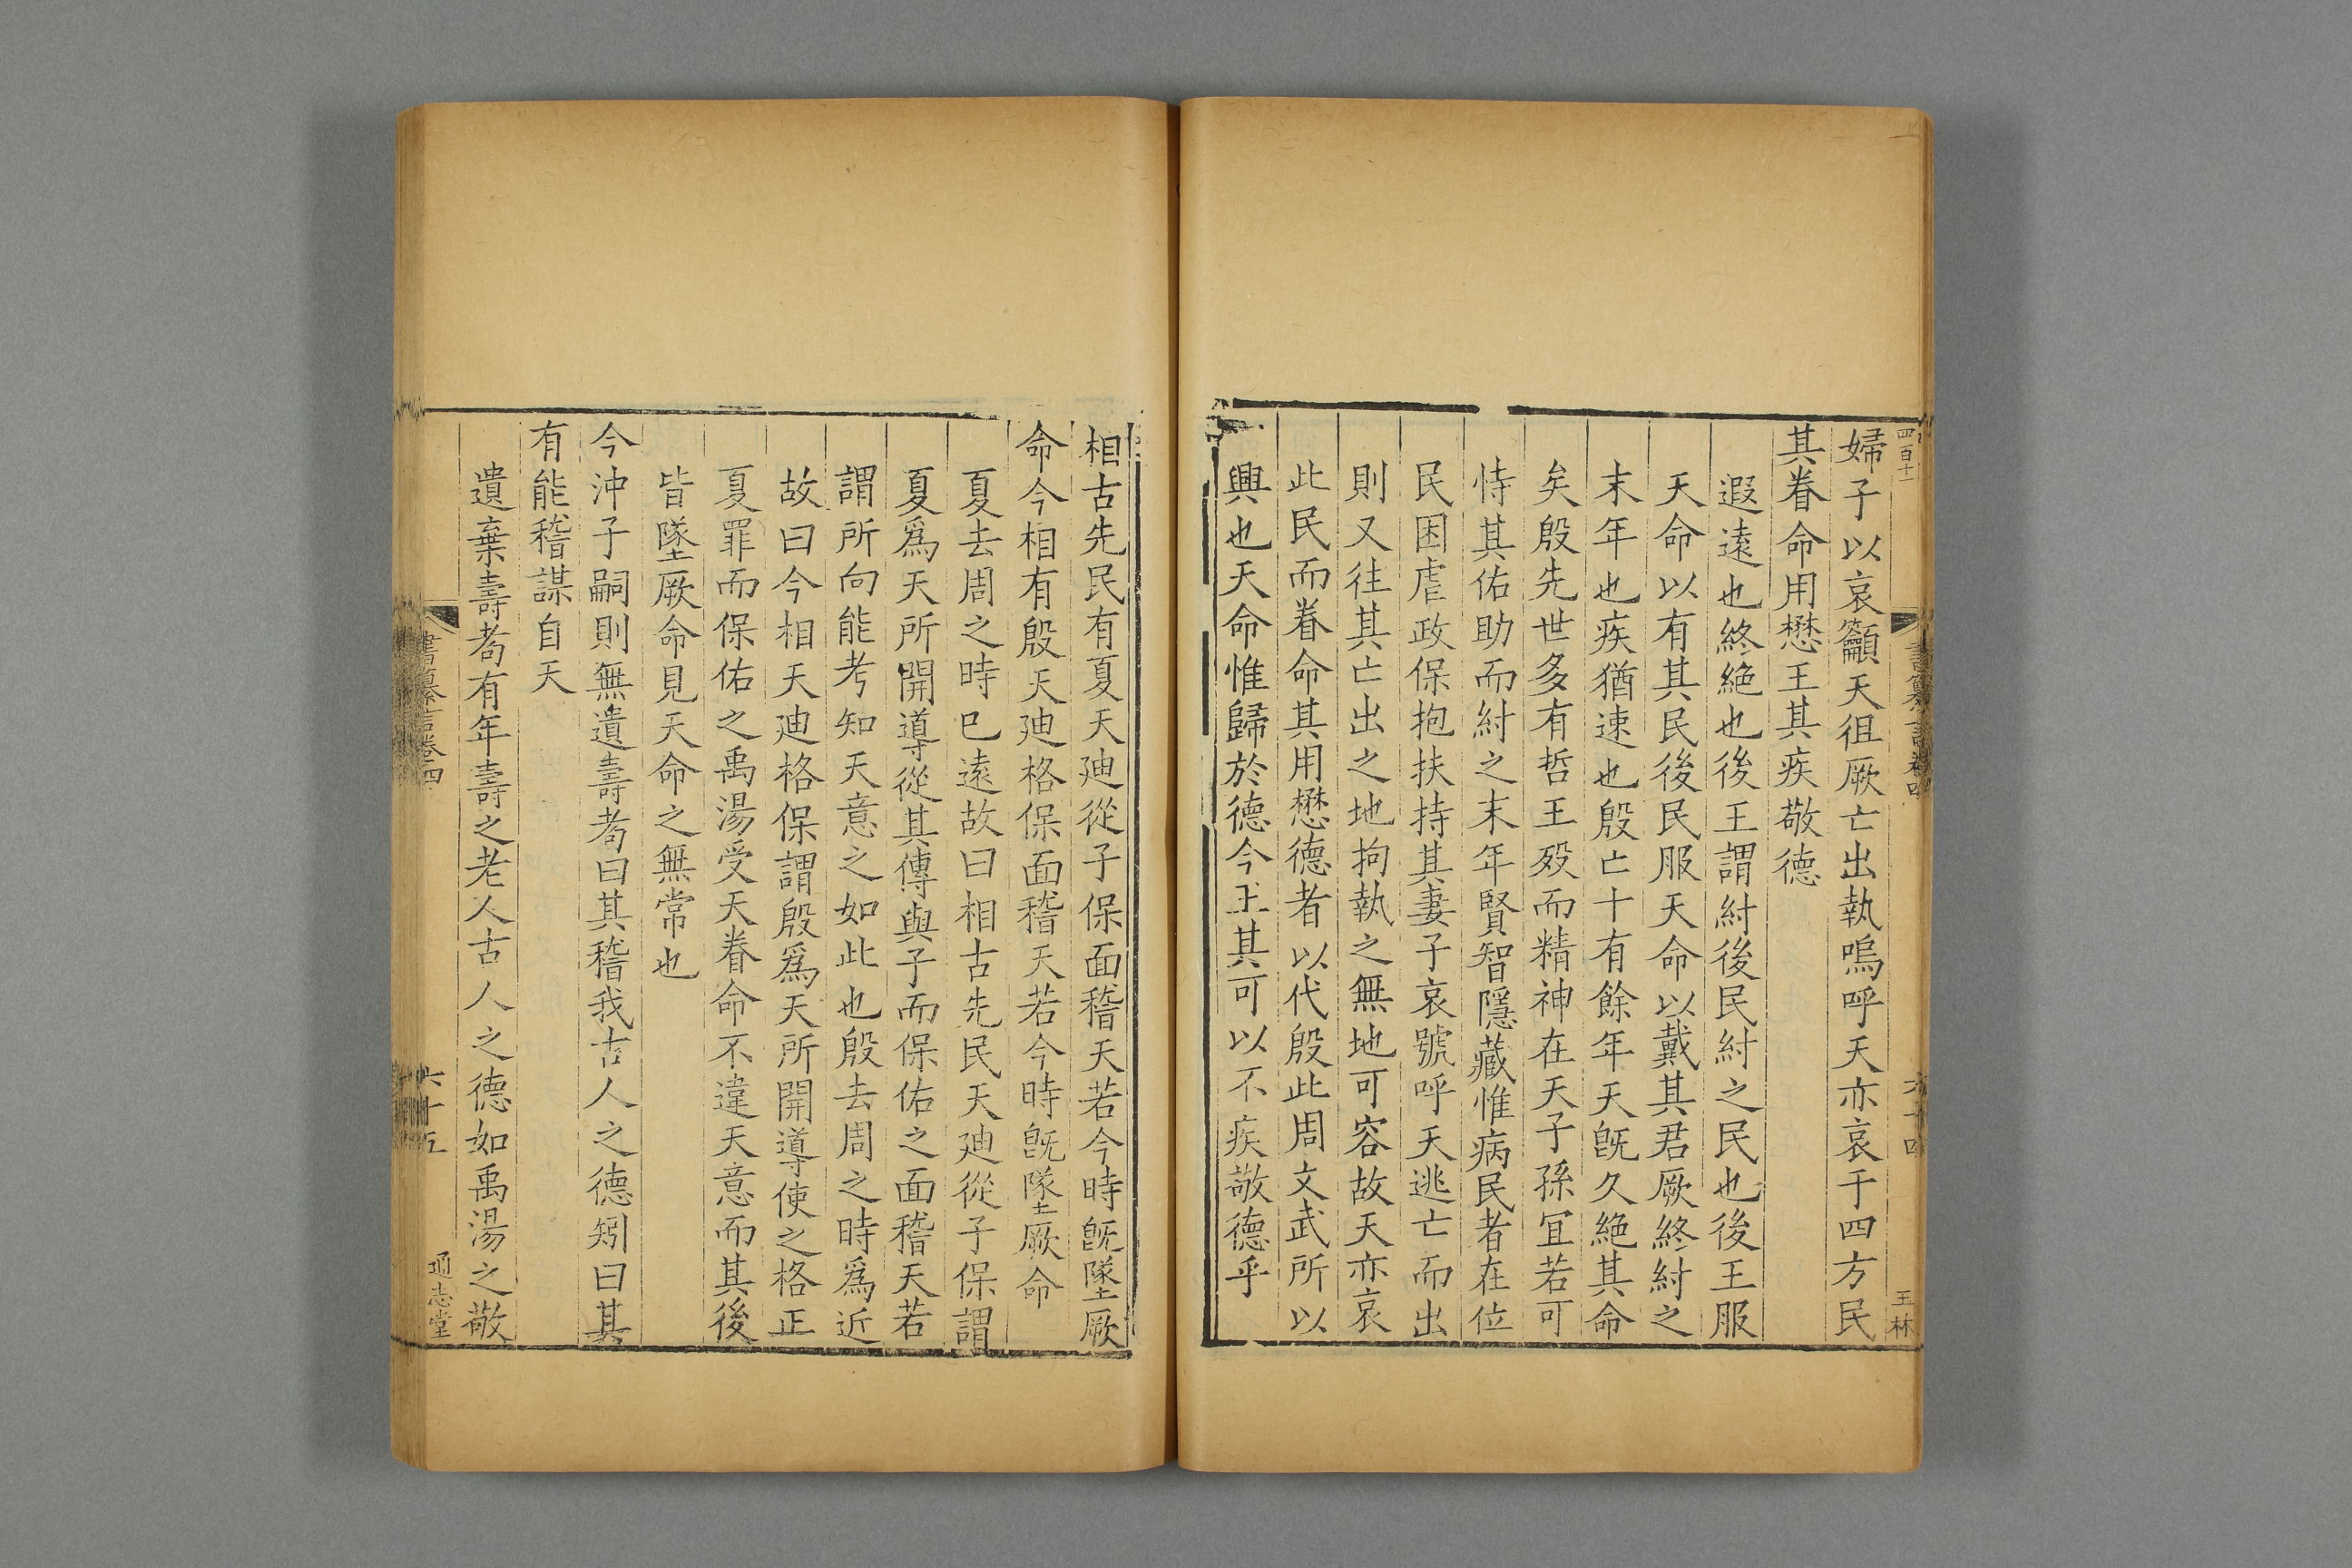 四百十一
書纂言卷四
六十四
王林
婦子以哀籲天徂厥亡出執嗚呼天亦哀于四方民
其眷命用懋王其疾敬德
遐遠也終絶也後王謂紂後民紂之民也後王服
天命以有其民後民服天命以戴其君厥終紂之
末年也疾猶速也殷亡十有餘年天旣久絶其命
矣殷先世多有哲王歿而精神在天子孫冝若可
恃其佑助而紂之末年賢智隱藏惟病民者在位
民困虐政保抱扶持其妻子哀號呼天逃亡而出
則又往其亡出之地拘執之無地可容故天亦哀
此民而眷命其用懋德者以代殷此周文武所以
興也天命惟歸於德今王其可以不疾敬德乎
相古先民有夏天廸從子保面稽天若今時旣墜厥
命今相有殷天廸格保面稽天若今時旣墜厥命
夏去周之時已遠故曰相古先民天廸從子保謂
夏爲天所開導從其傳與子而保佑之面稽天若
謂所向能考知天意之如此也殷去周之時爲近
故曰今相天廸格保謂殷爲天所開導使之格正
夏罪而保佑之禹湯受天眷命不違天意而其後
皆墜厥命見天命之無常也
今沖子嗣則無遺壽耇曰其稽我古人之德矧曰其
有能稽謀自天
遺棄壽耇有年壽之老人古人之德如禹湯之敬
書纂言卷四
六十五
通志堂